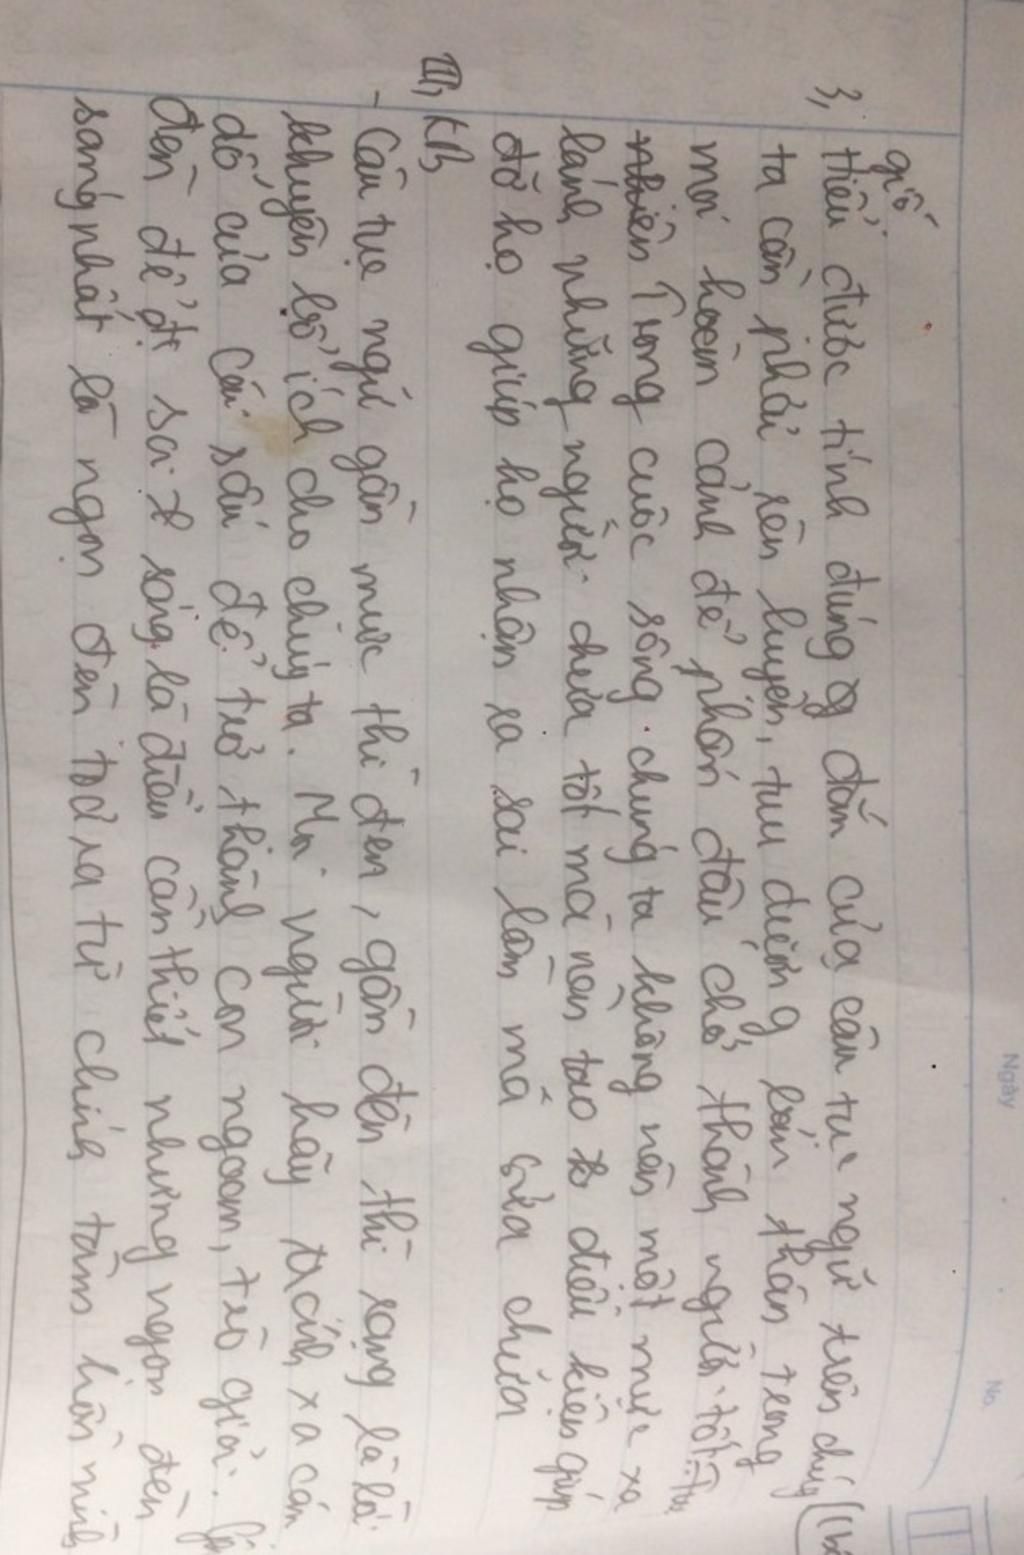 Ngày
No.
giố
3, Hiểu được tính đúng đắn của câu tục ngữ trên chúng
ta cần phải rèn luyện, tu dưỡng bản thân trong
mọi hoàn cảnh để phấn đấu chở thành người tốt. Tu
nhiên Trong cuộc sống chúng ta không nên một mực xa
lánh những người chưa tốt mà nên tạo điều kiện giúp
đỡ họ giúp họ nhận ra sai lầm mà sửa chữa
III, KB
- Câu tục ngữ gần mực thì đen, gần đèn thì sạng là lời
khuyên bổ ích cho chúng ta. Mọi người hãy tránh xa cám
dỗ của cái xấu để trở thành con ngoan, trò giỏi.
đèn để đt soi sáng là điều cần thiết nhưng ngọn đèn
sáng nhất là ngọn đèn toả ra từ chính tâm hồn mình